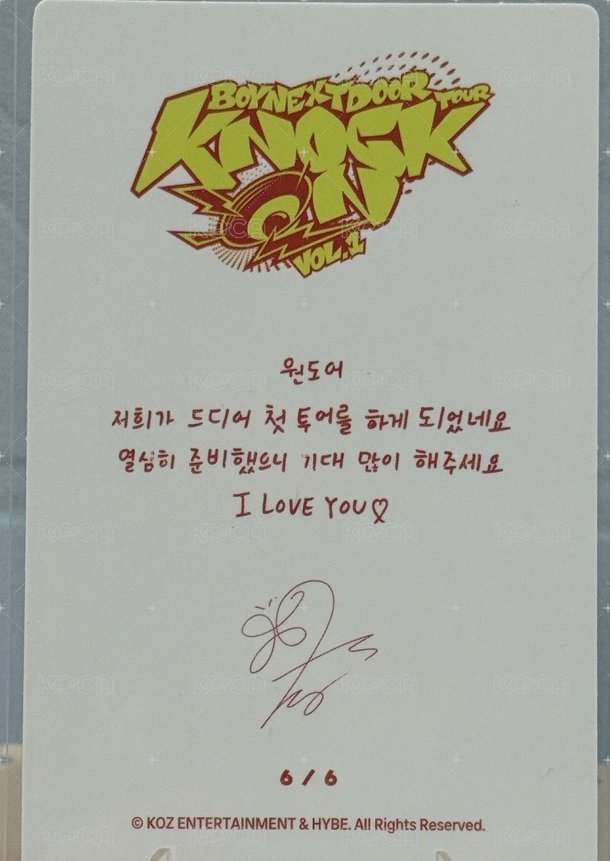 BOYNEXTDOOR TOUR
KNOCK
ON
VOL.1
원도어
저희가 드디어 첫 투어를 하게 되었네요
열심히 준비했으니 기대 많이 해주세요
I LOVE YOU♡
6/6
© KOZ ENTERTAINMENT & HYBE. All Rights Reserved.